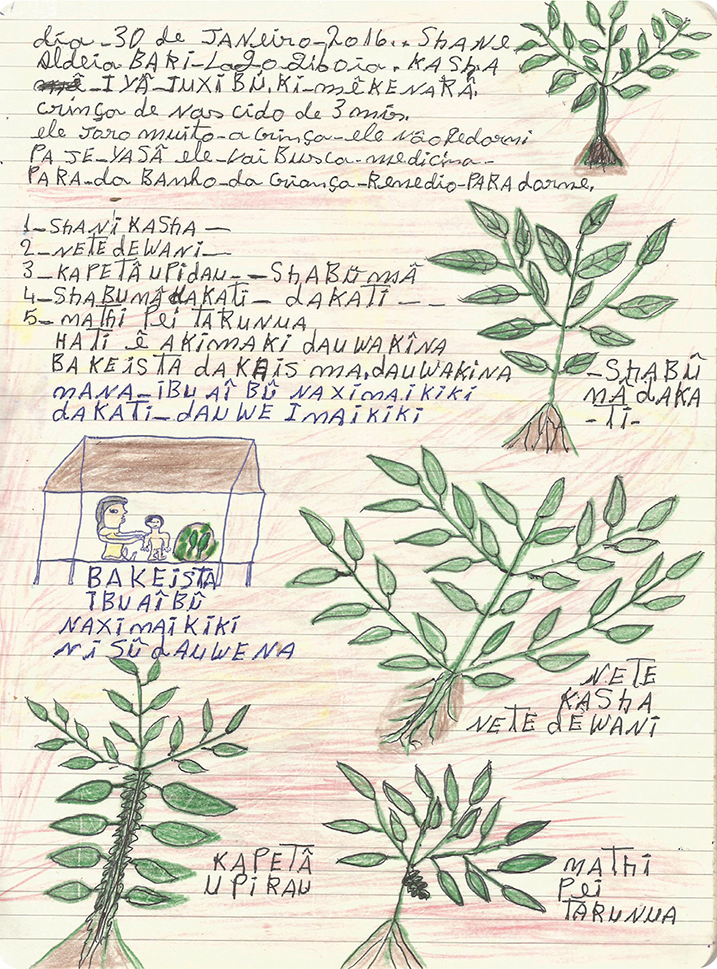 dia-30 de JANEiRO-2016.. SHANE.
Aldeia BARi-Lago Jiboia. KASHA
-IYÂ-JUXIBÛ.Ki-MÊKENARÂ.
crinça de NAScido de 3 mios.
ele Joro muito-a crinça-ele NÃo Pedormi
PAJE-YASÂ ele-Vai Busca-medicina-
PARA-da BANho-da criança-Remedio-PARA darme.
1-SHANi KASHA-
2-NETE dEWANi-
3-KAPETÂ UPidAU--SHABÛ MÂ
4-SHABUMÂ dAKATi-dAKATi--
5-MAThi PEi TARUNUA
HATi Ê AKiMAKi dAUWAKiNA
BAKEiSTA dAKEiS MA,dAUWAKiNA
MANA-iBUAÎ BÛ NAXiMAiKiKi
dAKATi-dAUWE iMAiKiKi
-SHABÛ
MÂ dAKA
-Ti-
BAKEiSTA
iBUAÎBÛ
NAXiMAiKiKi
NiSÛdAUWENA
NETE
KASHA
NETE dÊWANi
KAPETÂ
UPiRAU
MAThi
PEi
TARUNUA